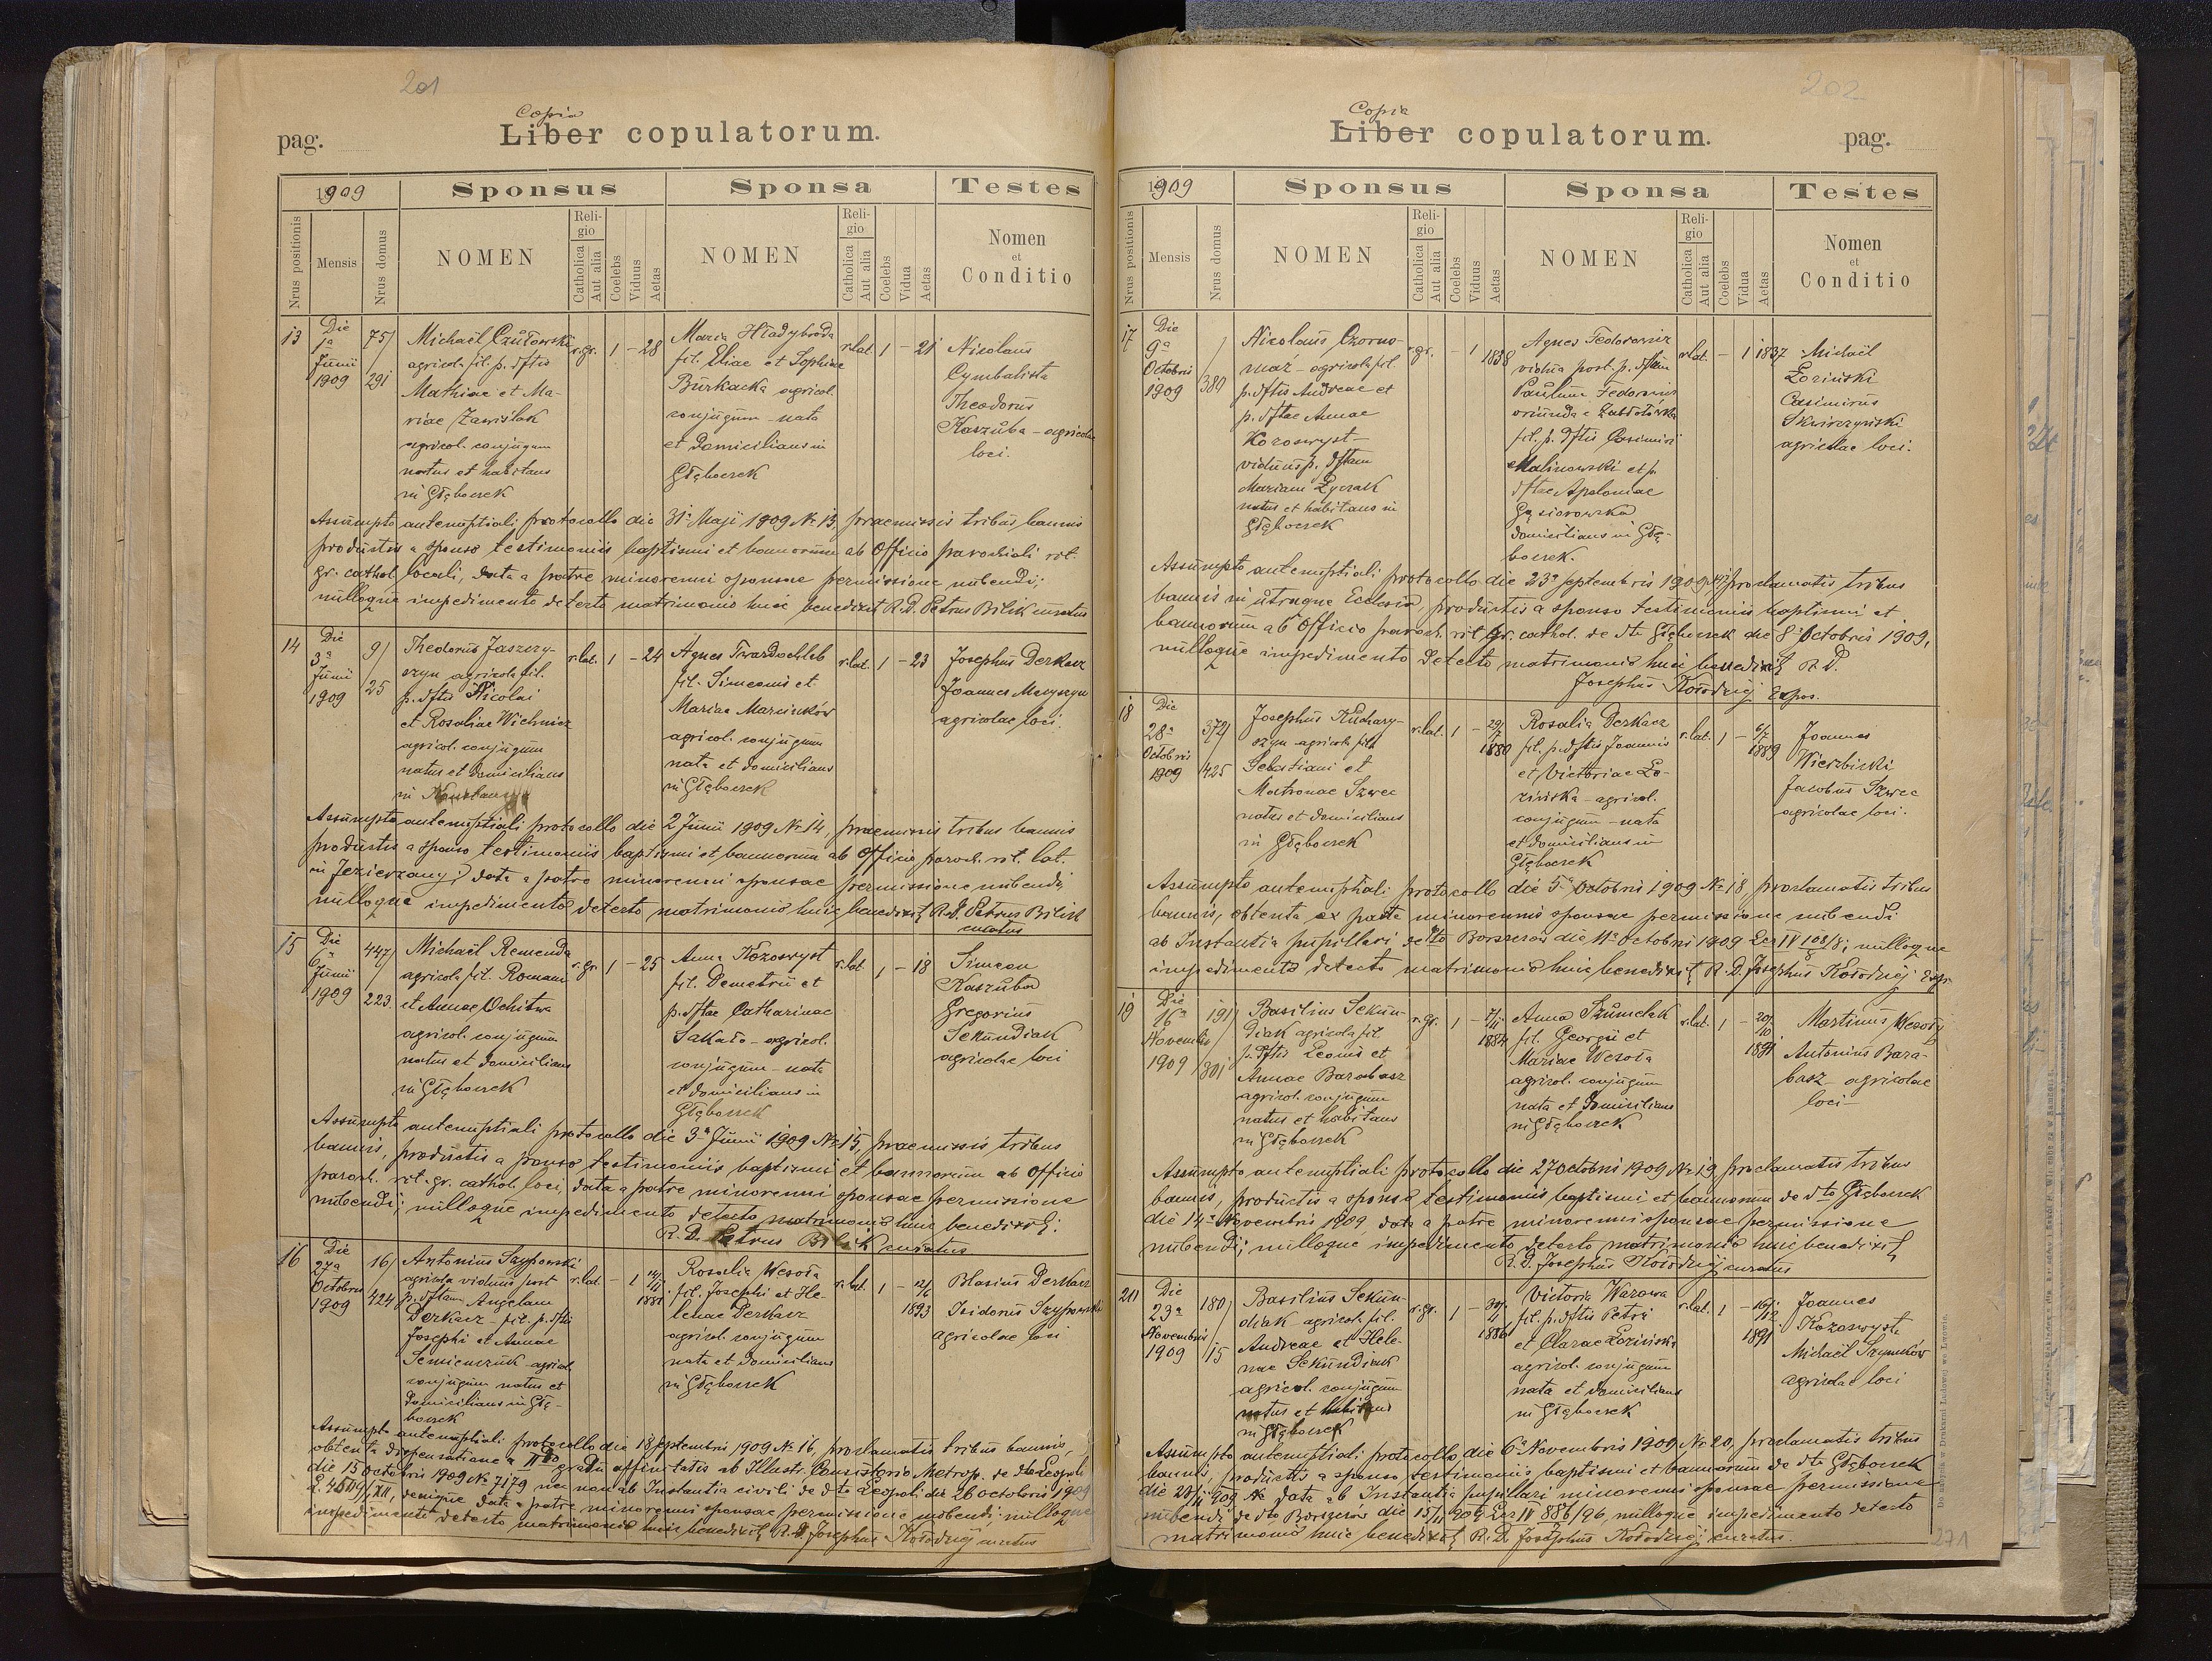 201
Copia
pag. Liber copulatorum.
1909 Sponsus Sponsa Testes
Nrus positionis Mensis Nrus domus NOMEN Religio Catholica Aut alia Coelebs Viduus Aetas NOMEN Religio Catholica Aut alia Coelebs Vidua Aetas Nomen et Conditio
13 Die 1a Junii 1909 75/291
Michaël Czułowski
agricola fil. p. dftis
Mathiae et Ma-
riae Zawiślak
agricol. conjugum
natus et habitans
in Głęboczek
r. gr. 1 – 28
Maria Hładybroda
fil. Eliae et Sophiae
Burkacka agricol.
conjugum – nata
et domicilians in
Głęboczek
r. lat. 1 – 21
Nicolaus
Cymbalista
Theodorus
Kaszuba – agricolae
loci.
Assumpto antenuptiali protocollo die 31 Maji 1909 Nr 13, praemissis tribus bannis
productis a sponso testimoniis baptismi et bannorum ab Officio parochiali rit.
gr. cathol. locali, data a patre minorenni sponsae permissione nubendi;
nulloque impedimento detecto matrimonio huic benedixit R.D. Petrus Bilik curatus
14 Die 3a Junii 1909 9/25
Theodorus Jaszczy-
szyn agricola fil.
p. dftis Nicolai
et Rosaliae Wichnicz
agricol. conjugum
natus et domicilians
in
r. lat. 1 – 24
Agnes Twardochleb
fil. Simeonis et
Mariae Marcinków
agricol. conjugum
nata et domicilians
in Głęboczek
r. lat. 1 – 23
Josephus Derkacz
Joannes
agricolae loci.
Assumpto antenuptiali protocollo die 2 Junii 1909 Nr 14, praemissis tribus bannis
productis a sponso testimoniis baptismi et bannorum ab Officio paroch. rit. lat.
in Jezierzany; data a patre minorenni sponsae permissione nubendi,
nulloque impedimento detecto matrimonio huic benedixit R.D. Petrus Bilik
curatus
15 Die 6a Junii 1909 447/223
Michaël Remenda
agricola fil. Romani
et Annae Ochitwa
agricol. conjugum
natus et domicilians
in Głęboczek
r. gr. 1 – 25
Anna Kozoswyst
fil. Demetrii et
p. dftae Catharinae
Sakało – agricol.
conjugum – nata
et domicilians in
Głęboczek
r. lat 1 – 18
Simeon
Kaszuba
Gregorius
Sekundiak
agricolae loci
Assumpto antenuptiali protocollo die 3a Junii 1909 Nr 15, praemissis tribus
bannis, productis a sponso testimoniis baptismi et bannorum ab Officio
paroch. rit. gr. cathol. loci, data a patre minorenni sponsae permissione
nubendi; nulloque impedimento detecto matrimonio huic benedixit:
R. D. Petrus Bilik curatus
16 Die 27a Octobris 1909 16/424
Antonius Szypowski
agricola viduus post
p. dftam Angelam
Derkacz – fil. p. dftis
Josephi et Annae
Semienczuk agricol.
conjugum natus et
domicilians in Głę-
boczek
r. lat – 1 1881
Rosalia Wesoła
fil. Josephi et He-
lenae Derkacz
agricol. conjugum
nata et domicilians
in Głęboczek
r. lat. 1 – 12/6 1893
Blasius Derkacz
Isidorus Szypowski
agricolae loci
Assumpto antenuptiali protocollo die 18 Septembris 1909 Nr 16, proclamatis tribus bannis,
obtenta dispensatione a II gradu affinitatis ab Illustr. Consistorio Metrop. de dto Leopoli
die 15 Octobris 1909 Nr 7179 nec non ab Instantia civili de dto Leopoli die 26 octobris 1909
denique data a patre minorenni sponsae permissione nubendi nulloque
impedimento detecto matrimonio huic benedixit R. D. Josephus Kołodziej curatus
202
Copia
Liber copulatorum. pag.
1909 Sponsus Sponsa Testes
Nrus positionis Mensis Nrus domus NOMEN Religio Catholica Aut alia Coelebs Viduus Aetas NOMEN Religio Catholica Aut alia Coelebs Vidua Aetas Nomen et Conditio
17 Die 9a Octobris 1909 /380
Nicolaus Czorno-
maz – agricola fil.
p. dftis Andreae et
p. dftae Annae
Kozoswyst –
viduus p. dftam
Mariam Łyczak
natus et habitans in
Głęboczek
r. gr. – 1 1838
Agnes Fedorowicz
vidua post. p. dftum
Paulum Fedorowicz
oriunda e Zabłotówka
fil. p. dftis Casimiri
Malinowski et p.
dftae Apoloniae
Gąsiorowska
domicilians in Głę-
boczek.
r. lat. – 1 1837
Michaël
Łoziński
Casimirus
Skwirzyński
agricolae loci.
Assumpto antenuptiali protocollo die 23a Septembris 1909 proclamatis tribus
bannis in utraque Ecclesia, productis a sponso testimoniis baptismi et
bannorum ab Officio paroch. rit. gr. cathol. de dto Głęboczek die 8 Octobris 1909,
nulloque impedimento detecto matrimonio huic benedixit R. D.
Josephus Kołodziej Expos.
18 Die 28a Octobris 1909 372/425
Josephus Kuchary-
szyn agricola fil.
Sebastiani et
Matronae Szwec
natus et domicilians
in Głęboczek
r. lat. 1 – 29/7 1880
Rosalia Derkacz
fil. p. dftis Joannis
et Victoriae Ło-
zińska – agricol.
conjugum – nata
et domicilians in
Głęboczek
r. lat. 1 – 6/7 1889
Joannes
Wierzbicki
Jacobus Szwec
agricolae loci.
Assumpto antenuptiali protocollo die 5a Octobris 1909 Nr 18, proclamatis tribus
bannis, obtenta ex parte minorennis sponsae permissione nubendi
ab Instantia pupillari de dto Borszczów die 11a Octobris 1909 Lcz IV 108/8; nulloque
impedimento detecto matrimonio huic benedixit R. D. Josephus Kołodziej Expos.
19 Die 16a Novembris 1909 191/301
Basilius Sekun-
diak agricola fil.
p. dftis Leonis et
Annae Barabasz
agricol. conjugum
natus et habitans
in Głęboczek
r. gr. 1 – 1884
Anna Szumelak
fil. Georgii et
Mariae Wesoła
agricol. conjugum
nata et domicilians
in Głęboczek
r. lat. 1 – 20/10 1891
Martinus Wesoły
Antonius Bara-
basz – agricolae
loci –
Assumpto antenuptiali protocollo die 27 Octobris 1909 Nr 19 proclamatis tribus
bannis, productis a sponso testimoniis baptismi et bannorum de dto Głęboczek
die 14a Novembris 1909 data a patre minorenni sponsae permissione
nubendi; nulloque impedimento detecto matrimonio huic benedixit
R. D. Josephus Kołodziej curatus
20 Die 23a Novembris 1909 180/15
Basilius Sekun-
diak agricola fil.
Andreae et Hele-
nae Sekundiak
agricol. conjugum
natus et habitans
in Głęboczek
r. gr. 1 – 1886
Victoria Warowa
fil. p. dftis Petri
et Clarae Łozińska
agricol. conjugum
nata et domicilians
in Głęboczek
r. lat. 1 – 16/12 1891
Joannes
Kozoswyst
Michaël Szymków
agricolae loci
Assumpto antenuptiali protocollo die 6a Novembris 1909 Nr 20, proclamatis tribus
bannis, productis a sponso testimoniis baptismi et bannorum de dto Głęboczek
die 20/11 909 data ab Instantia pupillari minorenni sponsae permissione
nubendi de dto Borszczów die 15/11 909 Lcz IV 886/96, nulloque impedimento detecto
matrimonio huic benedixit R. D. Josephus Kołodziej curatus.
271